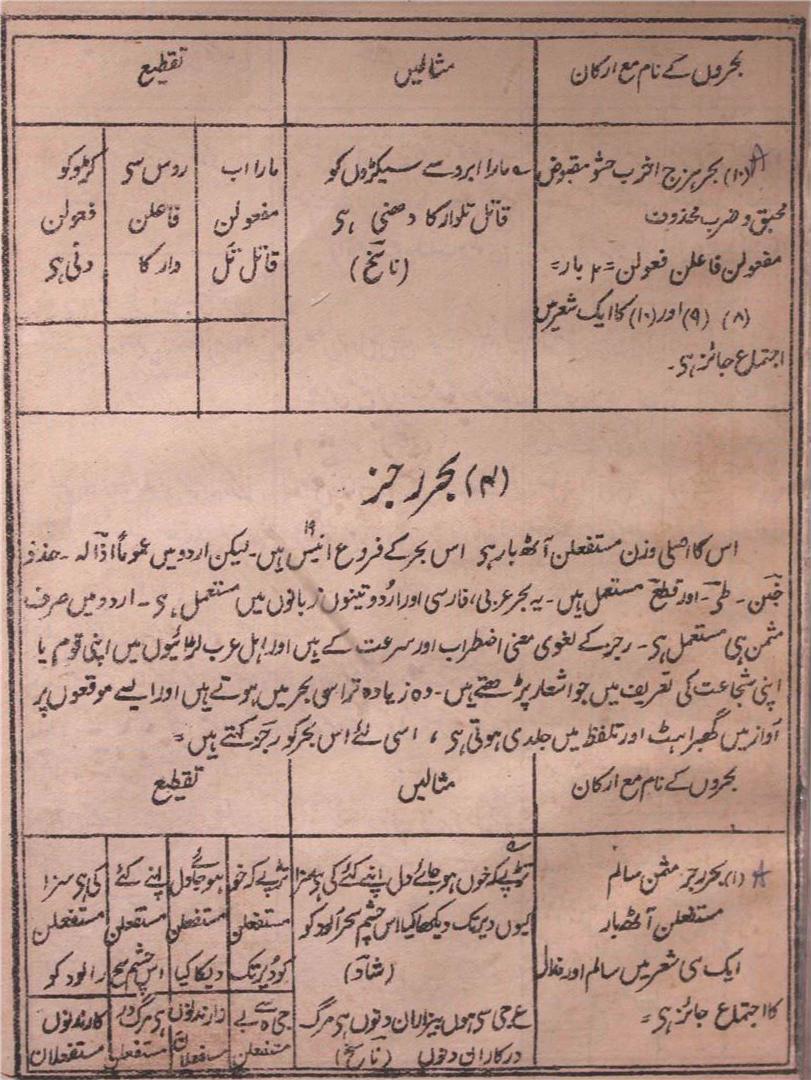 بحروں کے نام مع ارکان
مثالیں
تقطیع
(۱۰) بحر ہزج اخرب حشو مقبوض
محبق و ضرب محذوف
مفعولن فاعلن فعولن = ۲ بار =
(۸) (۹) اور (۱۰) کا ایک شعر میں
اجتماع جائز ہی۔
مارا ابرو سے سیکڑوں کو
قاتل تلوار کا دھنی ہی
(ناسخ)
مارا اب روس سی کڑو کو
مفعولن فاعلن فعولن
قاتل تل وار کا دنی ہی
(۴) بحر رجز
اس کا اصلی وزن مستفعلن آٹھ بار ہی اس بحر کے فروع انیس ۱۹ ہیں۔ لیکن اردو میں عموماً اذالہ ۔ حذذ
خبن ۔ طی ۔ اور قطع مستعمل ہیں۔ یہ بحر عربی، فارسی اور اردو تینوں زبانوں میں مستعمل ہی ۔ اردو میں صرف
مثمن ہی مستعمل ہی۔ رجز کے لغوی معنی اضطراب اور سرعت کے ہیں اور اہل عرب لڑائیوں میں اپنی قوم یا
اپنی شجاعت کی تعریف میں جو اشعار پڑھتے ہیں۔ وہ زیادہ تر اسی بحر میں ہوتے ہیں اور ایسے موقعوں پر
آواز میں گھبراہٹ اور تلفظ میں جلدی ہوتی ہی ، اسی لئے اس بحر کو رجز کہتے ہیں =
بحروں کے نام مع ارکان
مثالیں
تقطیع
(۱) بحر رجز مثمن سالم
مستفعلن آٹھ بار
ایک ہی شعر میں سالم اور مذال
کا اجتماع جائز ہی =
تڑپے کہ خوں ہو جائے دل اپنے کئے کی ہی سزا
کیوں دیر تک دیکھا کیا اس چشم سحر آلود کو
(شاد)
ع جی سی ہوں بیزار ان دنوں ہی مرگ
درکار ان دنوں (ناسخ)
تڑپے کہ خو ہو جائے دل اپنے کئے کی ہی سزا
مستفعلن مستفعلن مستفعلن مستفعلن
کو دیر تک دیکا کیا اس چشم سح رالود کو
جی سے بے زارندنوں ہی مرگ در کارندنوں
مستفعلن مستفعلان مستفعلن مستفعلان